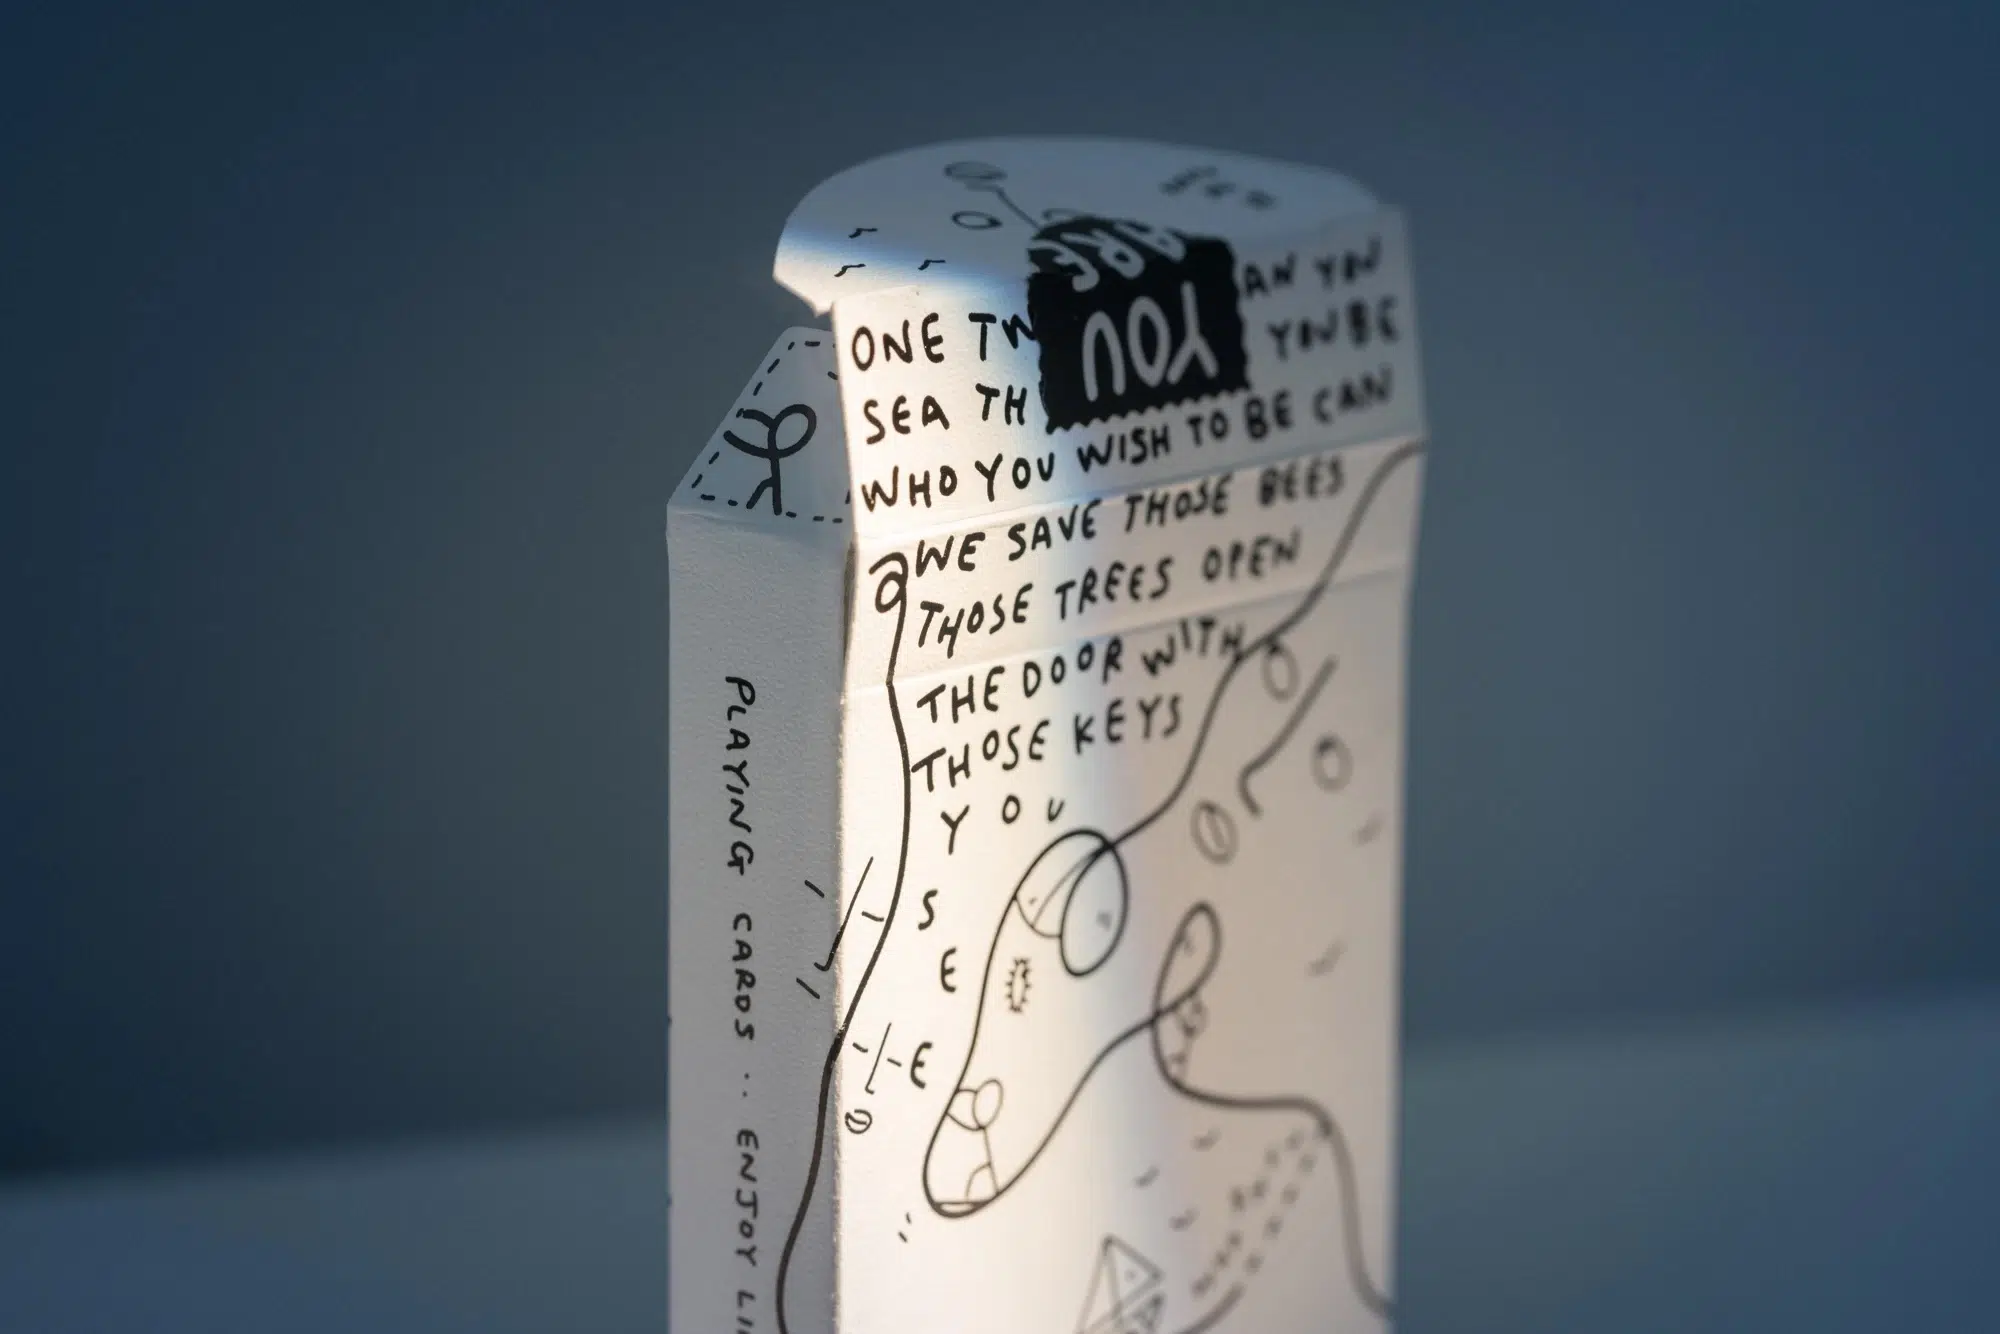 ARE
YOU
ONE TW AN YOU
SEA TH YOU BE
WHO YOU WISH TO BE CAN
WE SAVE THOSE BEES
THOSE TREES OPEN
THE DOOR WITH
THOSE KEYS
YOU
SEE
PLAYING CARDS .. ENJOY LI